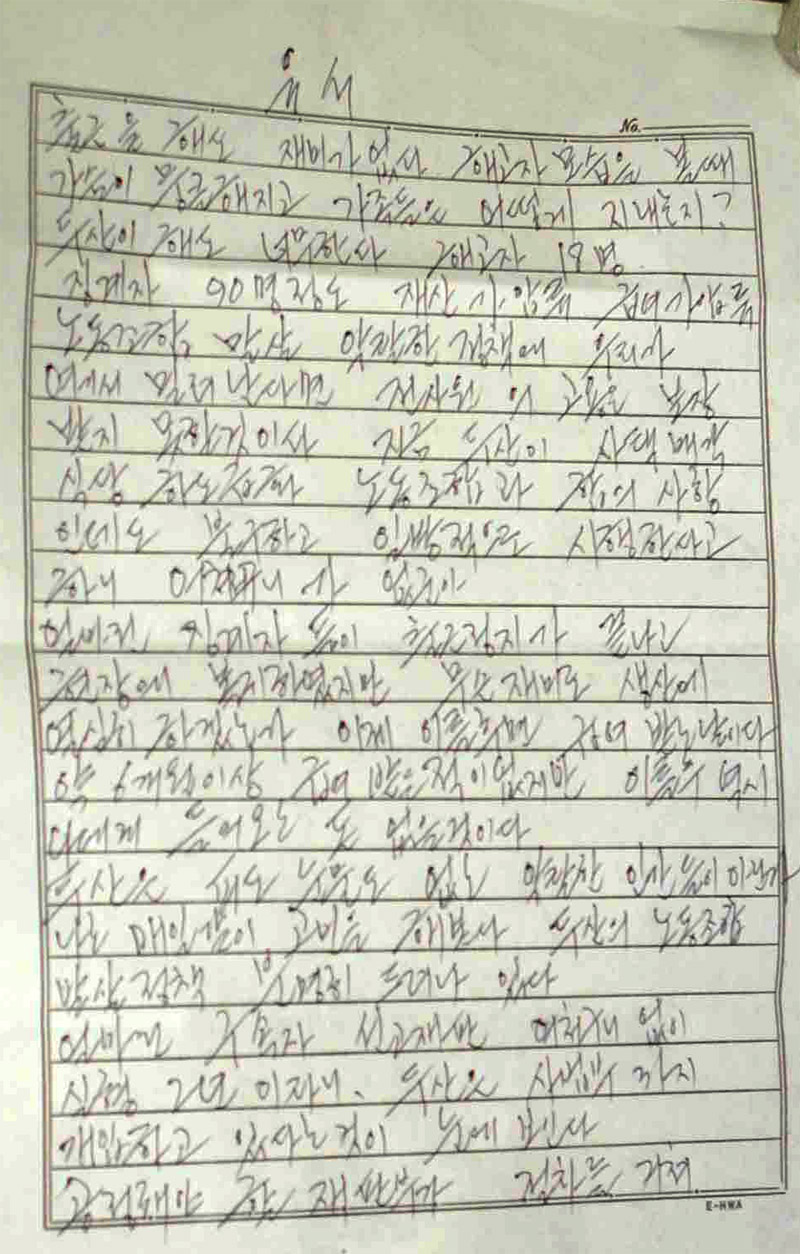 유서
No.
출근을 해도 재미가 없다 해고자 모습을 볼때
가슴이 뭉클해지고 가족들은 어떻게 지내는지?
두산이 해도 너무한다 해고자 18명
징계자 90명정도 재산가압류 급여가압류
노동조합 말살 악랄한 정책에 우리가
여기서 밀려난다면 전사원의 고용은 보장
받지 못할것이다 지금 두산이 사택매각
식당 하도급화 노동조합과 합의사항
인데도 불구하고 일방적으로 시행한다고
하니 어처구니가 없구나
얼마전 징계자들이 출근정지가 끝나고
현장에 복귀하였지만 무슨재미로 생산에
열심히 하겠는가 이제 이틀후면 급여 받는날이다
약 6개월이상 급여 받은적이 없지만 이틀후 역시
나에게 들어오는 돈 없을것이다
두산은 피도 눈물도 없는 악랄한 인간들이
나는 매일같이 고민을 해본다 두산의 노동조합
말살정책 분명히 드러나 있다
얼마전 구속자 선고재판 어처구니 없이
실형 2년 이라니. 두산은 사법부까지
개입하고 있다는것이 눈에 보인다
공정해야 할 재판부가 절차를 거쳐
E-HWA